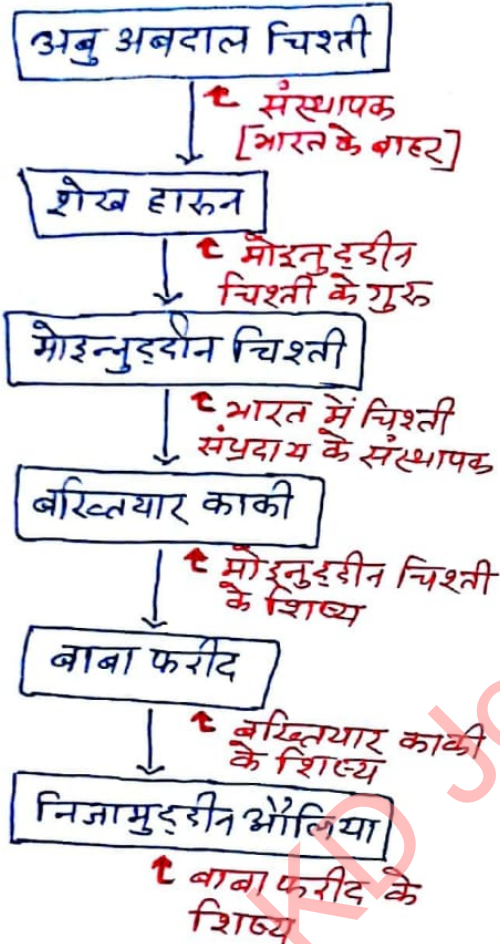 अबु अबदाल चिश्ती
संस्थापक
[भारत के बाहर]
शेख हारुन
मोइनुद्दीन
चिश्ती के गुरु
मोइनुद्दीन चिश्ती
भारत में चिश्ती
संप्रदाय के संस्थापक
बख्तियार काकी
मोइनुद्दीन चिश्ती
के शिष्य
बाबा फरीद
बख्तियार काकी
के शिष्य
निजामुद्दीन औलिया
बाबा फरीद के
शिष्य
KD